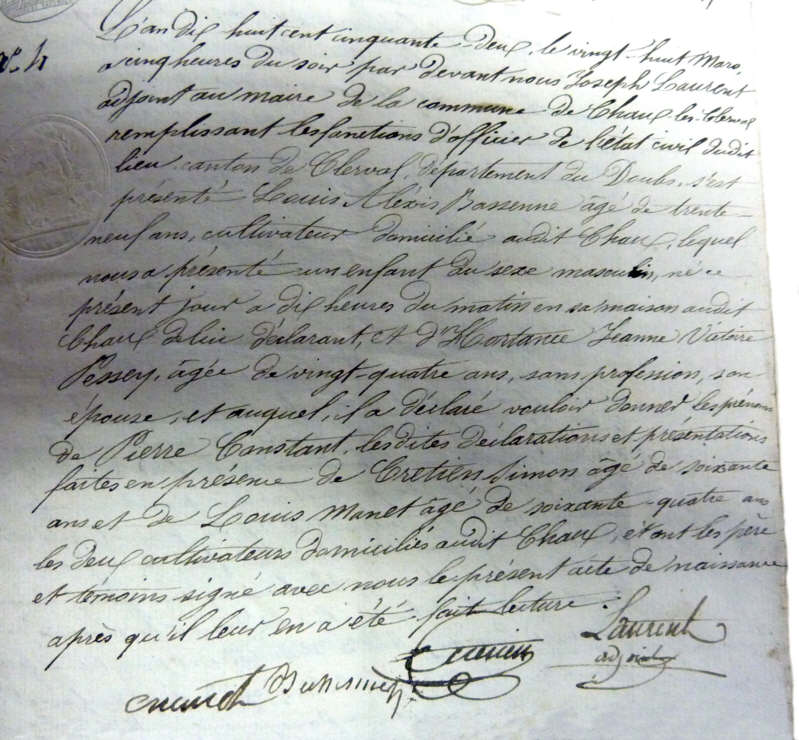 N° 4
L'an dix huit cent cinquante-deux, le vingt-huit Mars,
a cinq heures du soir par devant nous Joseph Laurent
adjoint au maire de la commune de Chaux-les-Clerval
remplissant les fonctions d'officier de l'état civil dudit
lieu, canton de Clerval, département du Doubs, s'est
présenté Louis Alexis Bassenne âgé de trente-
neuf ans, cultivateur domicilié audit Chaux, lequel
nous a présenté un enfant du sexe masculin, né ce
présent jour a dix heures du matin en sa maison audit
Chaux de lui déclarant, et d'Hortance Jeanne Victoire
Pessey, âgée de vingt-quatre ans, sans profession, son
épouse, et auquel, il a déclaré vouloir donner les prénoms
de Pierre Constant, lesdites déclarations et présentations
faites en présence de Cretien Simon âgé de soixante
ans et de Louis Manet âgé de soixante-quatre ans
les deux cultivateurs domiciliés audit Chaux, et ont les père
et témoins signé avec nous le présent acte de naissance
après qu'il leur en a été fait lecture.
Laurent
adjoint